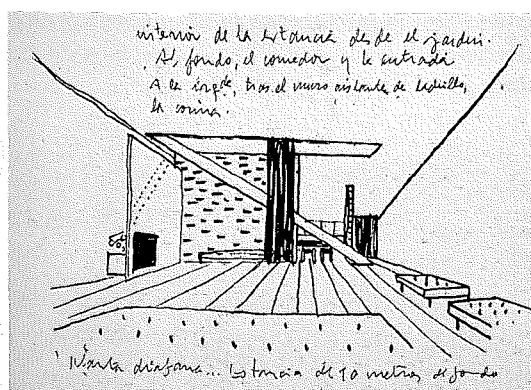 interior de la estancia desde el jardín.
Al fondo, el comedor y la entrada
A la izqda, tras el muro aislante de ladrillo,
la cocina.
Planta diáfana... Estancia de 10 metros de fondo